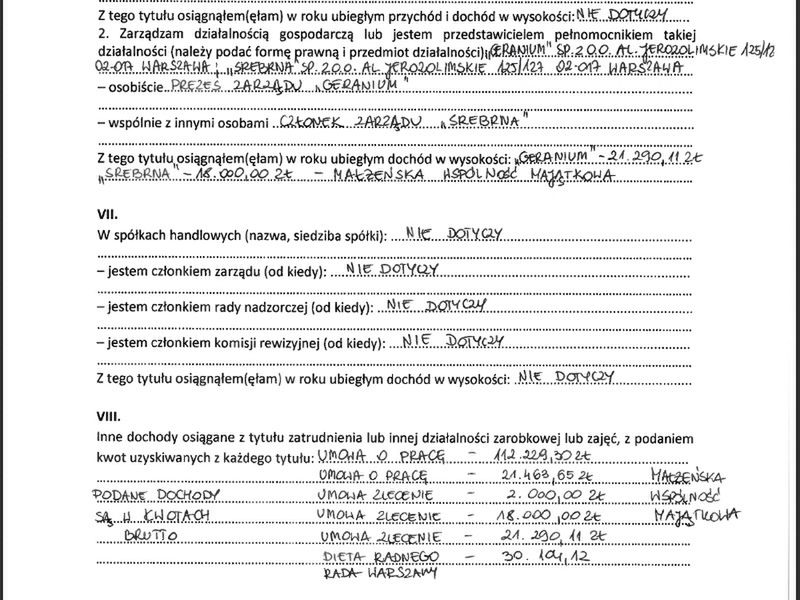 Z tego tytułu osiągnąłem(ęłam) w roku ubiegłym przychód i dochód w wysokości: NIE DOTYCZY
2. Zarządzam działalnością gospodarczą lub jestem przedstawicielem pełnomocnikiem takiej
działalności (należy podać formę prawną i przedmiot działalności): „GERANIUM" SP. Z O.O. AL. JEROZOLIMSKIE 125/12
02-017 WARSZAWA; „SREBRNA" SP. Z O.O. AL. JEROZOLIMSKIE 125/127 02-017 WARSZAWA
– osobiście PREZES ZARZĄDU „GERANIUM"
– wspólnie z innymi osobami CZŁONEK ZARZĄDU „SREBRNA"
Z tego tytułu osiągnąłem(ęłam) w roku ubiegłym dochód w wysokości: „GERANIUM" – 21.290,11 ZŁ
„SREBRNA" – 18.000,00 ZŁ – MAŁŻEŃSKA WSPÓLNOŚĆ MAJĄTKOWA
VII.
W spółkach handlowych (nazwa, siedziba spółki): NIE DOTYCZY
– jestem członkiem zarządu (od kiedy): NIE DOTYCZY
– jestem członkiem rady nadzorczej (od kiedy): NIE DOTYCZY
– jestem członkiem komisji rewizyjnej (od kiedy): NIE DOTYCZY
Z tego tytułu osiągnąłem(ęłam) w roku ubiegłym dochód w wysokości: NIE DOTYCZY
VIII.
Inne dochody osiągane z tytułu zatrudnienia lub innej działalności zarobkowej lub zajęć, z podaniem
kwot uzyskiwanych z każdego tytułu: UMOWA O PRACĘ – 112.229,30 ZŁ
UMOWA O PRACĘ – 21.463,65 ZŁ MAŁŻEŃSKA
PODANE DOCHODY UMOWA ZLECENIE – 2.000,00 ZŁ WSPÓLNOŚĆ
SĄ W KWOTACH UMOWA ZLECENIE – 18.000,00 ZŁ MAJĄTKOWA
BRUTTO UMOWA ZLECENIE – 21.290,11 ZŁ
DIETA RADNEGO – 30.104,12
RADA WARSZAWY